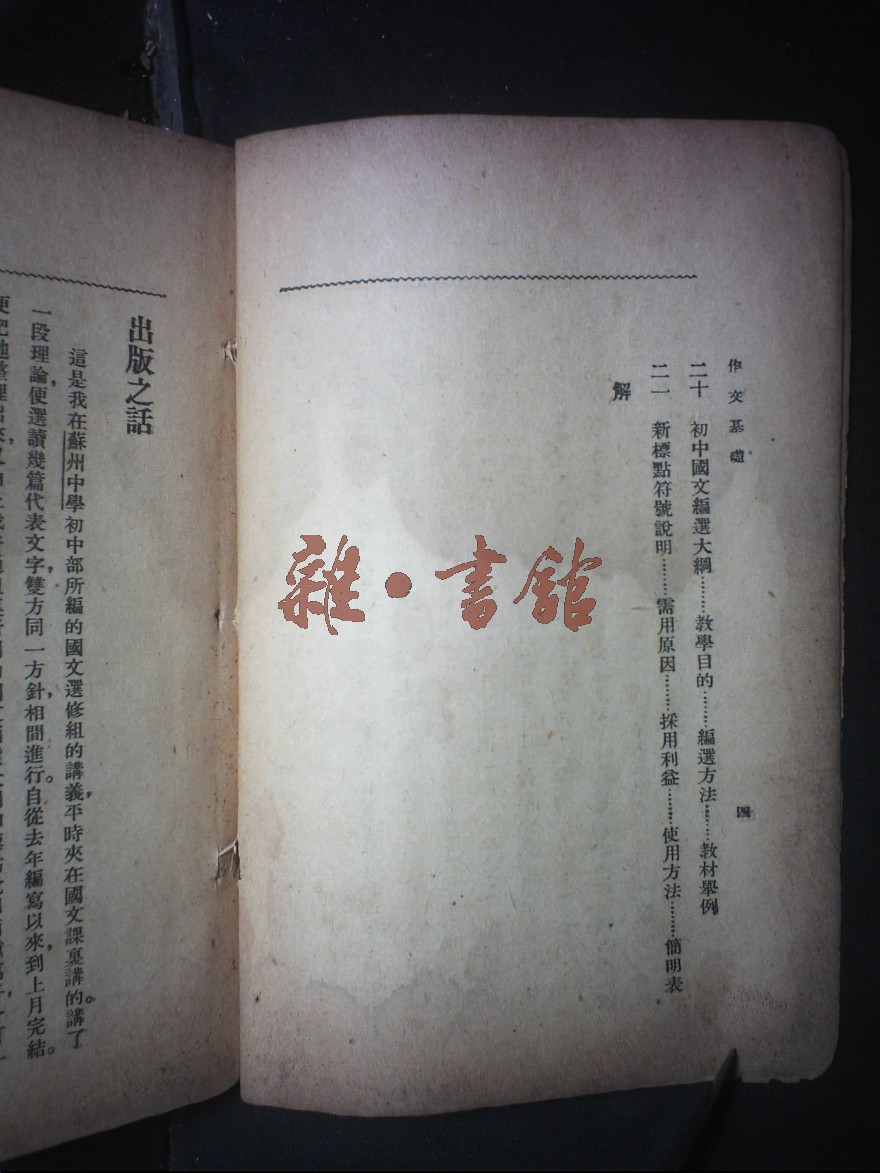 作文基礎
二十 初中國文編選大綱………教學目的………編選方法………教材舉例
二一 新標點符號說明………需用原因………採用利益………使用方法………簡明表
解
四
雜·書館
出版之話
這是我在蘇州中學初中部所編的國文選修組的講義，平時夾在國文課裏講的。講了
一段理論，便選讀幾篇代表文字，雙方同一方針，相間進行。自從去年編寫以來，到上月完結。
便把他整理出來，